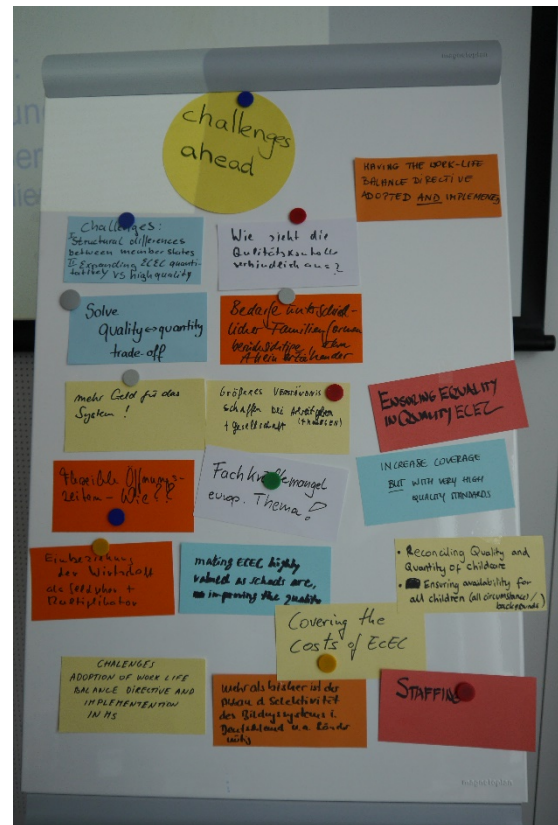 magnetoplan
challenges
ahead
HAVING THE WORK-LIFE
BALANCE DIRECTIVE
ADOPTED AND IMPLEMENTED
Challenges:
Structural differences
between member states
Expanding ECEC quanti-
tatively vs high quality
Wie sieht die
Qulitätskontrolle
verbindlich aus?
Solve
quality↔quantity
trade-off
Bedarfe unterschied-
licher Familienformen
Alleinerziehender
mehr Geld für das
System!
Größeres Verständnis
schaffen bei Arbeitgebern
+ Gesellschaft
ENSURING EQUALITY
IN QUALITY ECEC
Flexible Öffnungs-
zeiten - Wie??
Fachkräftemangel
europ. Thema!
INCREASE COVERAGE
BUT WITH VERY HIGH
QUALITY STANDARDS
Einbeziehung
der Wirtschaft
als Geldgeber +
Multiplikator
making ECEC highly
valued as schools are,
improving the quality
• Reconciling Quality and
Quantity of childcare
• Ensuring availability for
all children (all circumstances/
backgrounds)
Covering the
costs of ECEC
CHALENGES
ADOPTION OF WORK LIFE
BALANCE DIRECTIVE AND
IMPLEMENTENTION
IN MS
Mehr als bisher ist der
Selektivität
des Bildungssystems i.
Deutschland u.a. Länder
nötig
STAFFING
magnetoplan